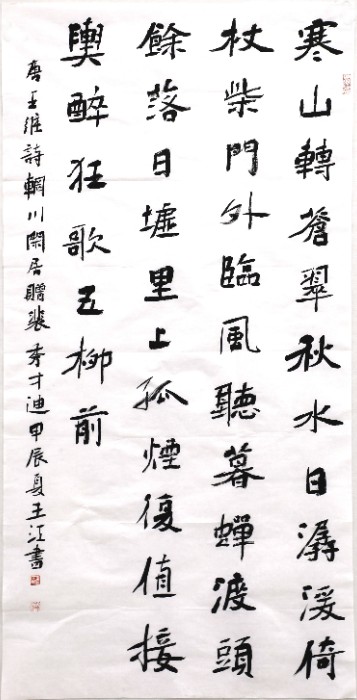 寒山轉蒼翠秋水日潺湲倚
杖柴門外臨風聽暮蟬渡頭
餘落日墟里上孤煙復值接
輿醉狂歌五柳前
唐王維詩輞川閑居贈裴秀才迪甲辰夏王江書